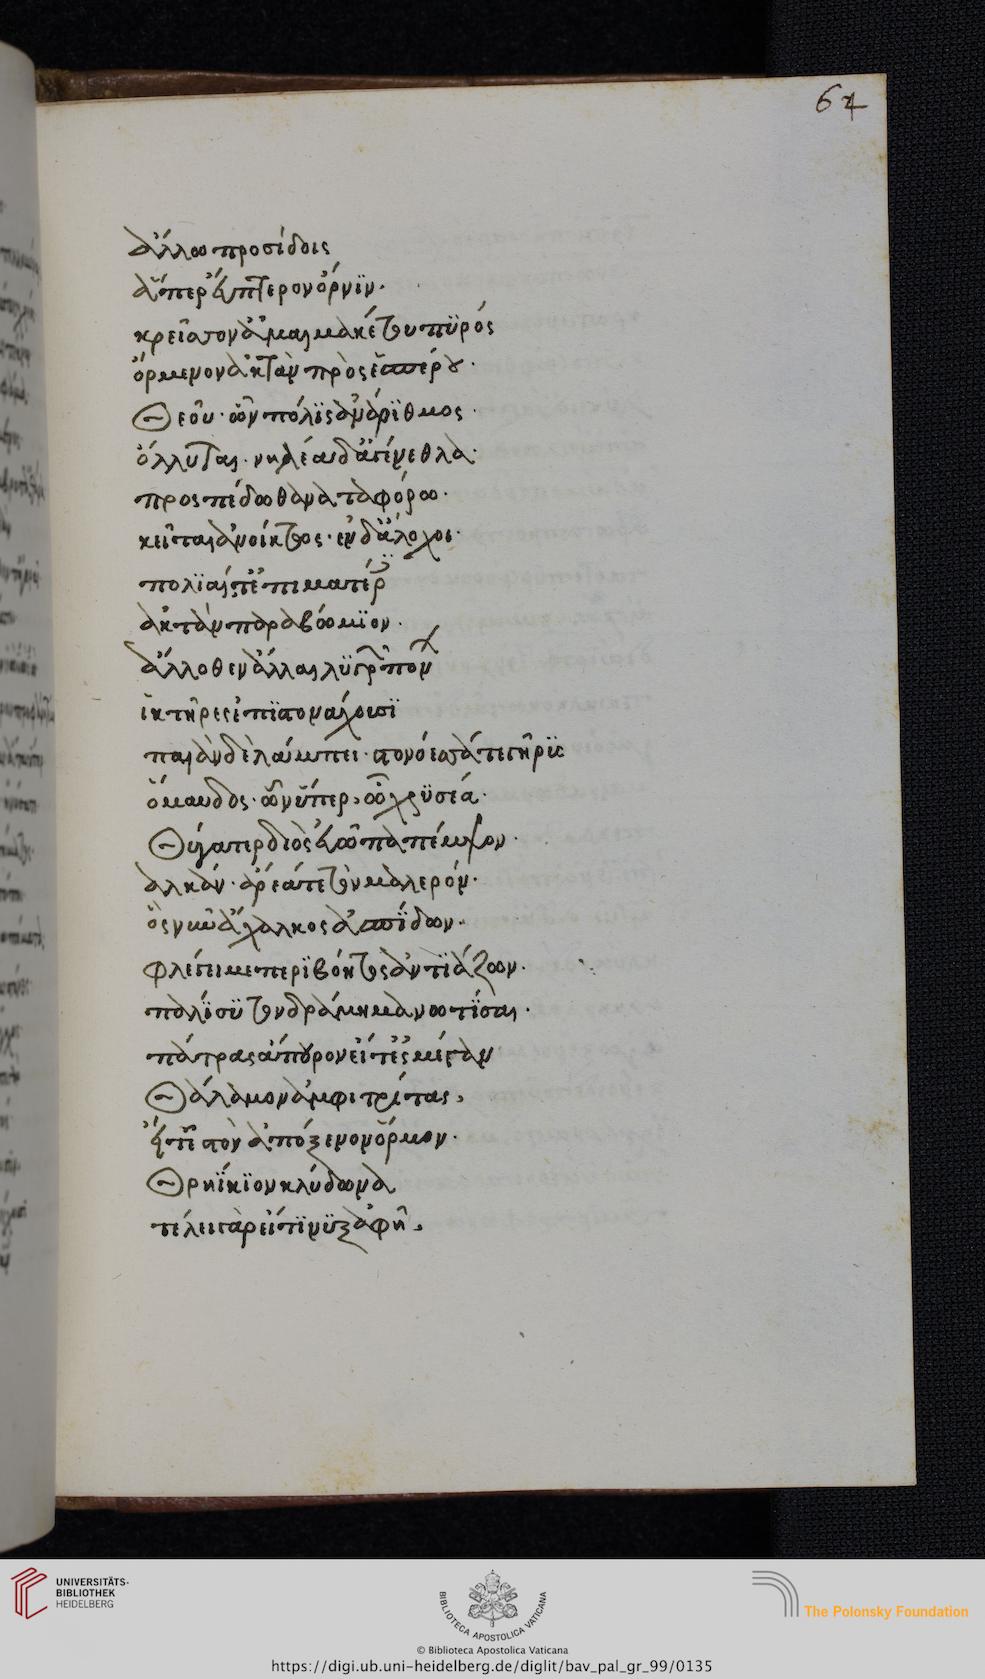 64
ἄλλω προσίδοις
ἅπερ εὔπτερον ὄρνιν·
κρεῖσσον ἀμαιμακέτου πυρός
ὄρμενον ἀκτὰν πρὸς ἑσπέρου·
Θεοῦ· ὧν πόλις ἀνάριθμος·
ὄλλυται· νηλέα δὲ γένεθλα·
προς πέδω θανα ταφόρω·
κεῖται ἀνοίκτος· ἐν δ' ἄλοχοι·
πολιαί τ' ἔπι ματέρ
ἀκτὰν παρα βώμιον·
ἄλλοθεν ἄλλαι λυγρ πον
ἱκτῆρες ἐπιστοναχοῦσι
παιὰν δὲ λάμπει· στονόεσσά τε γῆρις
ὅμαυλος· ὧν ὕπερ, ὦ χρυσέα·
Θύγατερ διὸς εὐῶπα πέμψον·
ἀλκάν· ἄρεά τε τὸν μαλερόν·
ὃς νῦν ἄχαλκος ἀσπίδων·
φλέγει με περιβόητος ἀντιάζων·
παλίσυτον δράμημα νωτίσαι·
πάτρας ἄπουρον εἴτ' ἐς μέγαν
Θάλαμον ἀμφιτρίτας,
εἴτ' ἐς τὸν ἀπόξενον ὅρμον·
Θρηίκιον κλύδωνα
τέλει γὰρ εἴ τι νὺξ ἀφῆ,
UNIVERSITÄTS-
BIBLIOTHEK
HEIDELBERG
BIBLIOTECA APOSTOLICA VATICANA
The Polonsky Foundation
© Biblioteca Apostolica Vaticana
https://digi.ub.uni-heidelberg.de/diglit/bav_pal_gr_99/0135